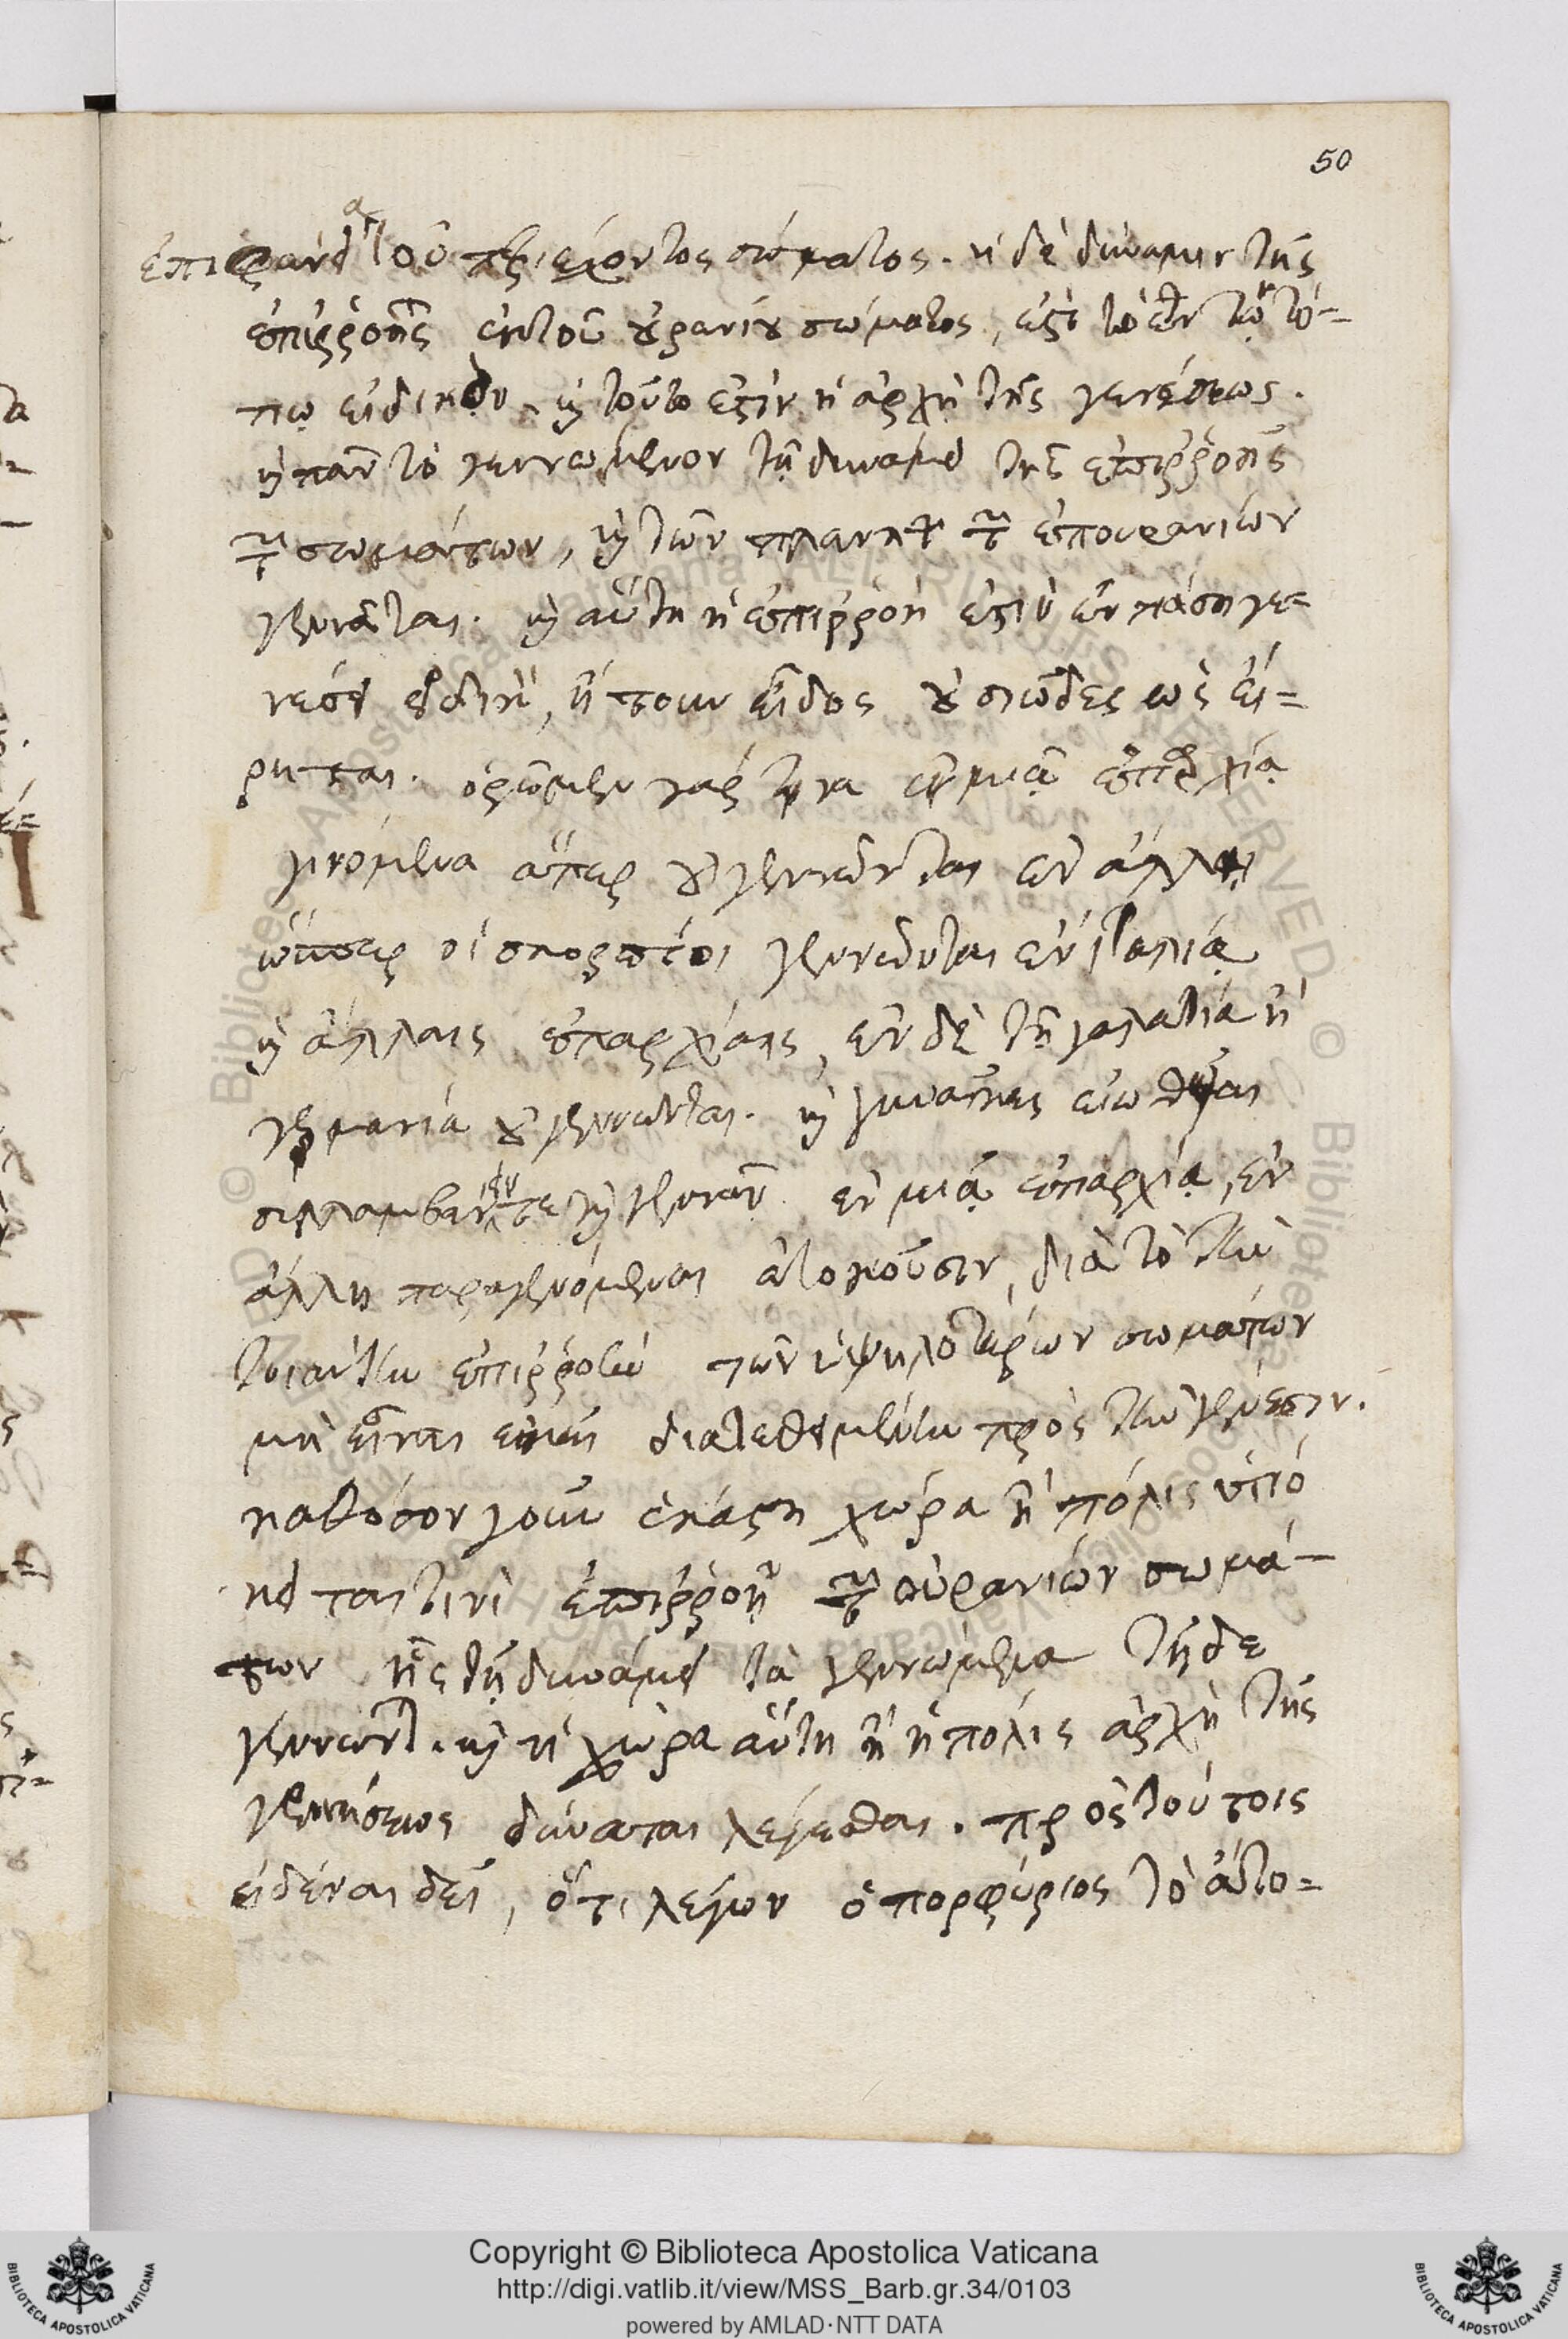 50
ἐπιφανεία τοῦ περιέχοντος σώματος. ἡ δὲ δύναμιν τῆς
ἐπιρροῆς ἐκ τοῦ οὐρανίου σώματος, ἐστὶ τὸ ἐν τῷ τό=
πῳ εἰδικὸν. καὶ τοῦτο ἐστὶν ἡ ἀρχὴ τῆς γενέσεως.
καὶ πᾶν τὸ γεννώμενον τῇ δυνάμει τῆς ἐπιρροῆς
τῶν σωμάτων, καὶ τῶν πλανητῶν τῶν ἐπουρανίων
γεννᾶται. καὶ αὕτη ἡ ἐπιρροή ἐστὶν ἐν πάσῃ γε=
νέσει εἰδικὴ, ἤτουν εἶδος οὐσιῶδες ὡς εἴ=
ρηται. ὁρῶμεν γάρ τινα ἐν μιᾷ ἐπαρχίᾳ
γινόμενα ἅπερ οὐ γεννῶνται ἐν ἄλλῃ
ὥσπερ οἱ σκορπίοι γεννῶνται ἐν ἰταλίᾳ
καὶ ἄλλαις ἐπαρχίαις, ἐν δὲ τῇ γαλατίᾳ ἢ
γερμανίᾳ οὐ γεννῶνται. καὶ γυναῖκες εἰωθυῖαι
συλλαμβάνειν τε καὶ γεννᾶν ἐν μιᾷ ἐπαρχίᾳ, ἐν
ἄλλῃ παραγενόμεναι ἀτοκοῦσιν, διὰ τὸ τὴν
τοιαύτην ἐπιρροὴν τῶν ὑψηλοτέρων σωμάτων
μὴ εἶναι ἐκεῖ διατεθειμένην πρὸς τὴν γένεσιν.
καθόσον γοῦν ἑκάστη χώρα ἢ πόλις ὑπό
κειται τινὶ ἐπιρροῇ τῶν οὐρανίων σωμά-
των ἧς τῇ δυνάμει τὰ γεννώμενα τῇδε
γεννῶνται. καὶ ἡ χώρα αὕτη ἢ ἡ πόλις ἀρχὴ τῆς
γεννήσεως δύναται λέγεσθαι. πρὸς τούτοις
εἰδέναι δεῖ, ὅτι λέγων ὁ πορφύριος τὸ ἄτο=
Copyright © Biblioteca Apostolica Vaticana
http://digi.vatlib.it/view/MSS_Barb.gr.34/0103
powered by AMLAD·NTT DATA